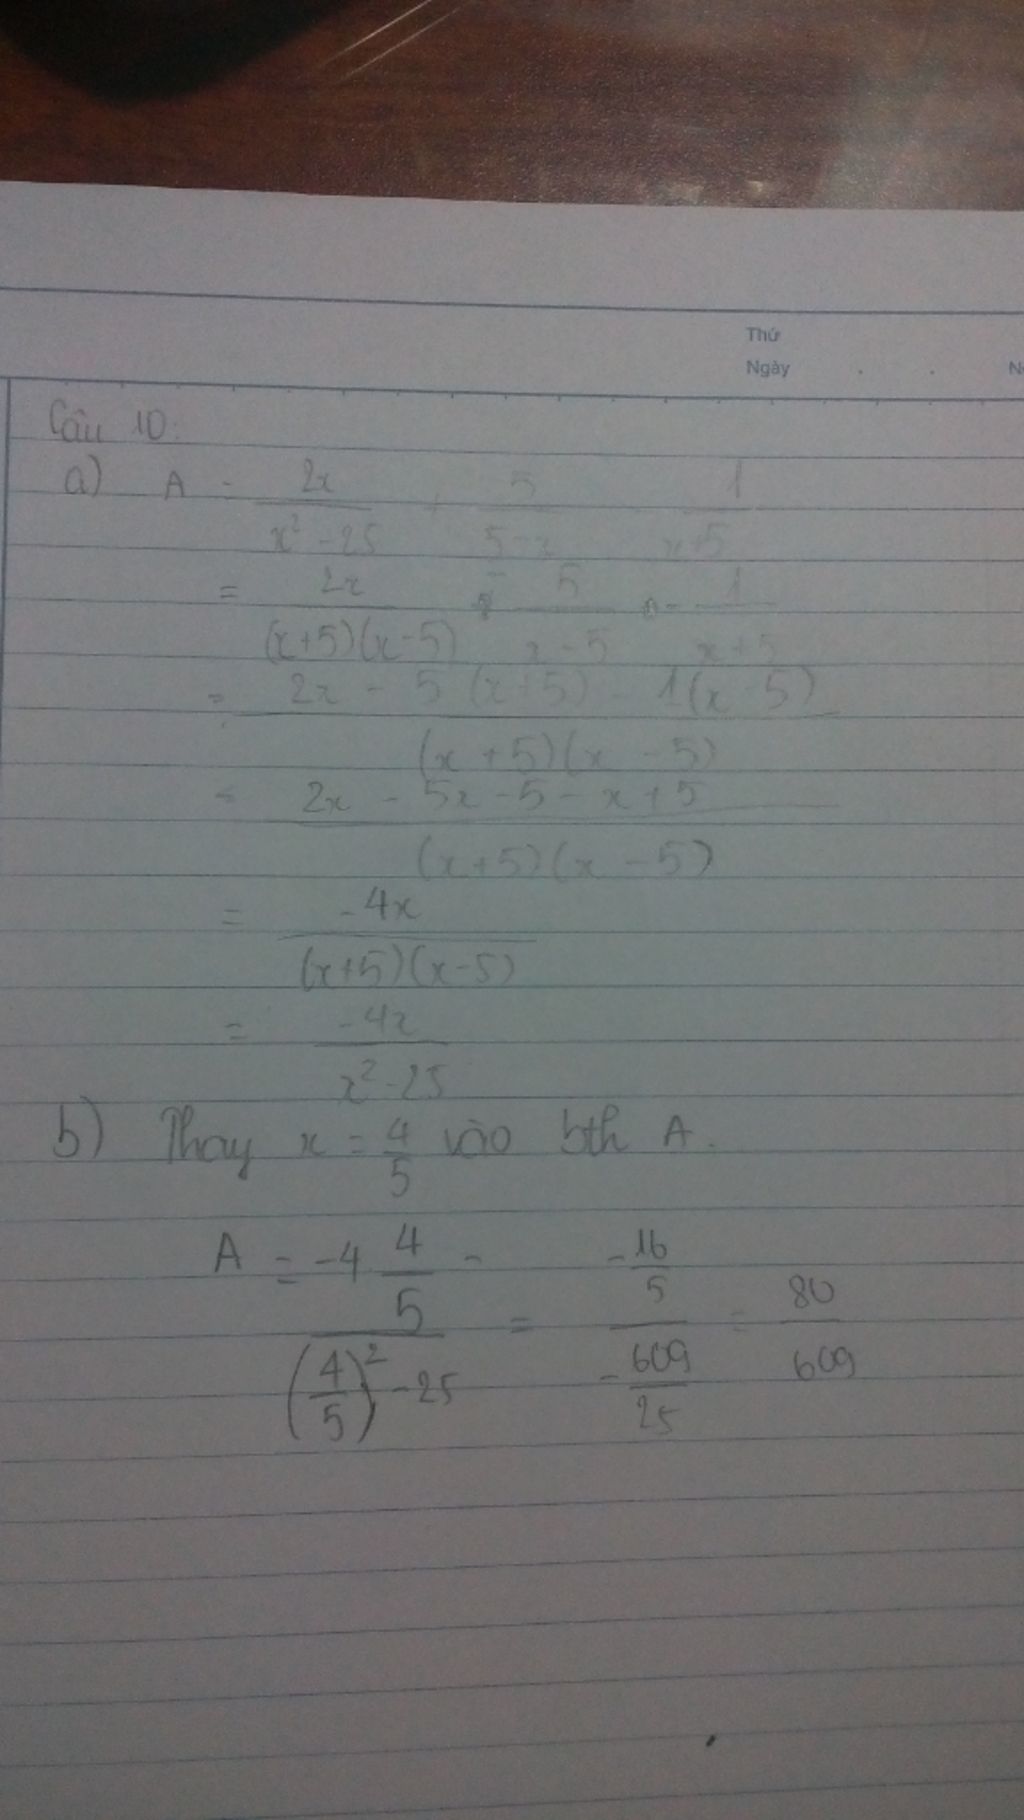 Thứ
Ngày
Câu 10:
a) A = 2x/(x² - 25) + 5/(5 - x) - 1/(x + 5)
= 2x/((x+5)(x-5)) - 5/(x-5) - 1/(x+5)
= (2x - 5(x+5) - 1(x-5))/((x+5)(x-5))
= (2x - 5x - 5 - x + 5)/((x+5)(x-5))
= -4x/((x+5)(x-5))
= -4x/(x² - 25)
b) Thay x = 4/5 vào bth A.
A = (-4 4/5)/((4/5)² - 25) = (-16/5)/(-609/25) = 80/609